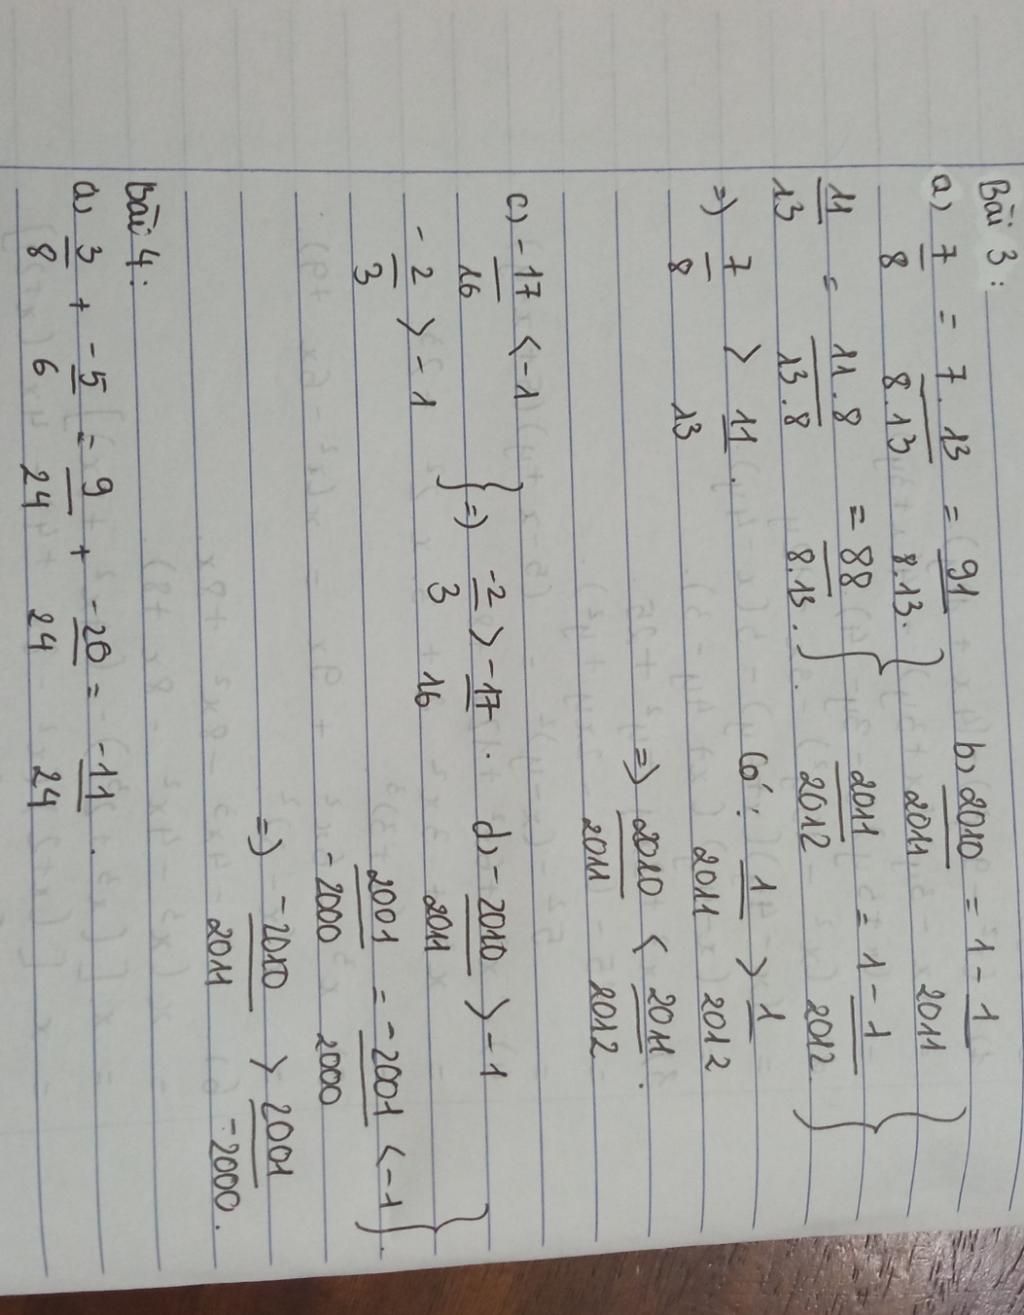 Bài 3:
a) 7/8 = 7.13/8.13 = 91/8.13.
11/13 = 11.8/13.8 = 88/8.13.
=) 7/8 > 11/13.
b) 2010/2011 = 1 - 1/2011
2011/2012 = 1 - 1/2012
Có: 1/2011 > 1/2012
=) 2010/2011 < 2011/2012.
c) -17/16 < -1
-2/3 > -1
=) -2/3 > -17/16.
d) -2010/2011 > -1
2001/-2000 = -2001/2000 < -1
=) -2010/2011 > 2001/-2000.
Bài 4:
a) 3/8 + -5/6 = 9/24 + -20/24 = -11/24.